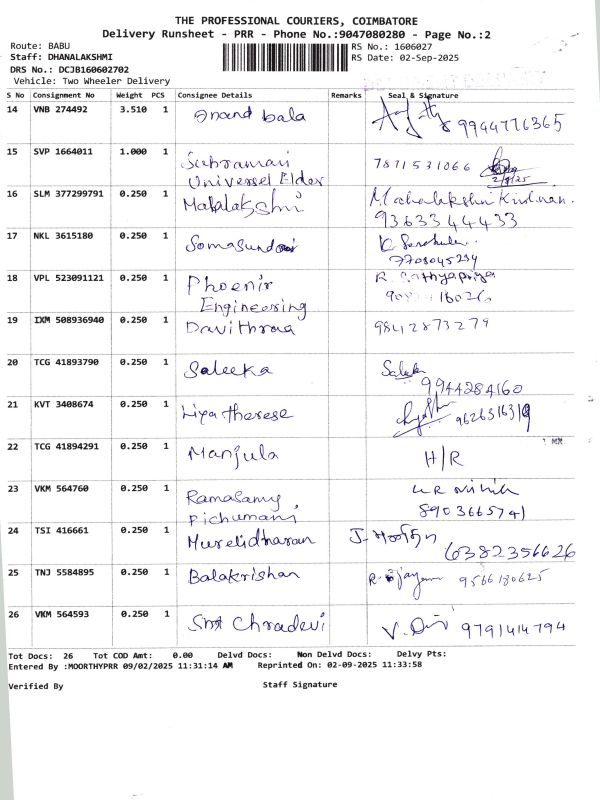 THE PROFESSIONAL COURIERS, COIMBATORE
Delivery Runsheet - PRR - Phone No.:9047080280 - Page No.:2
Route: BABU RS No.: 1606027
Staff: DHANALAKSHMI RS Date: 02-Sep-2025
DRS No.: DCJB160602702
Vehicle: Two Wheeler Delivery
S No Consignment No Weight PCS Consignee Details Remarks Seal & Signature
14 VNB 274492 3.510 1 Anand bala 9944776365
15 SVP 1664011 1.000 1 Subramani 7871531066
Universel Eldor 2/9/25
16 SLM 377299791 0.250 1 Mahalakshmi
9363344433
17 NKL 3615180 0.250 1 Somasundar
7708045294
18 VPL 523091121 0.250 1 Phoenix R. Sathyapriya
Engineering
19 IXM 508936940 0.250 1 Davithraa 9842873279
20 TCG 41893790 0.250 1 Saleeka
9944284160
21 KVT 3408674 0.250 1 Liya therese
22 TCG 41894291 0.250 1 Manjula H/R
23 VKM 564760 0.250 1 Ramasamy
Pichumani 8903665741
24 TSI 416661 0.250 1 Murelidharan
6382356626
25 TNJ 5584895 0.250 1 Balakrishan 9566180625
26 VKM 564593 0.250 1 Smt Chradevi V. Devi 9791414794
Tot Docs: 26 Tot COD Amt: 0.00 Delvd Docs: Non Delvd Docs: Delvy Pts:
Entered By :MOORTHYPRR 09/02/2025 11:31:14 AM Reprinted On: 02-09-2025 11:33:58
Verified By Staff Signature